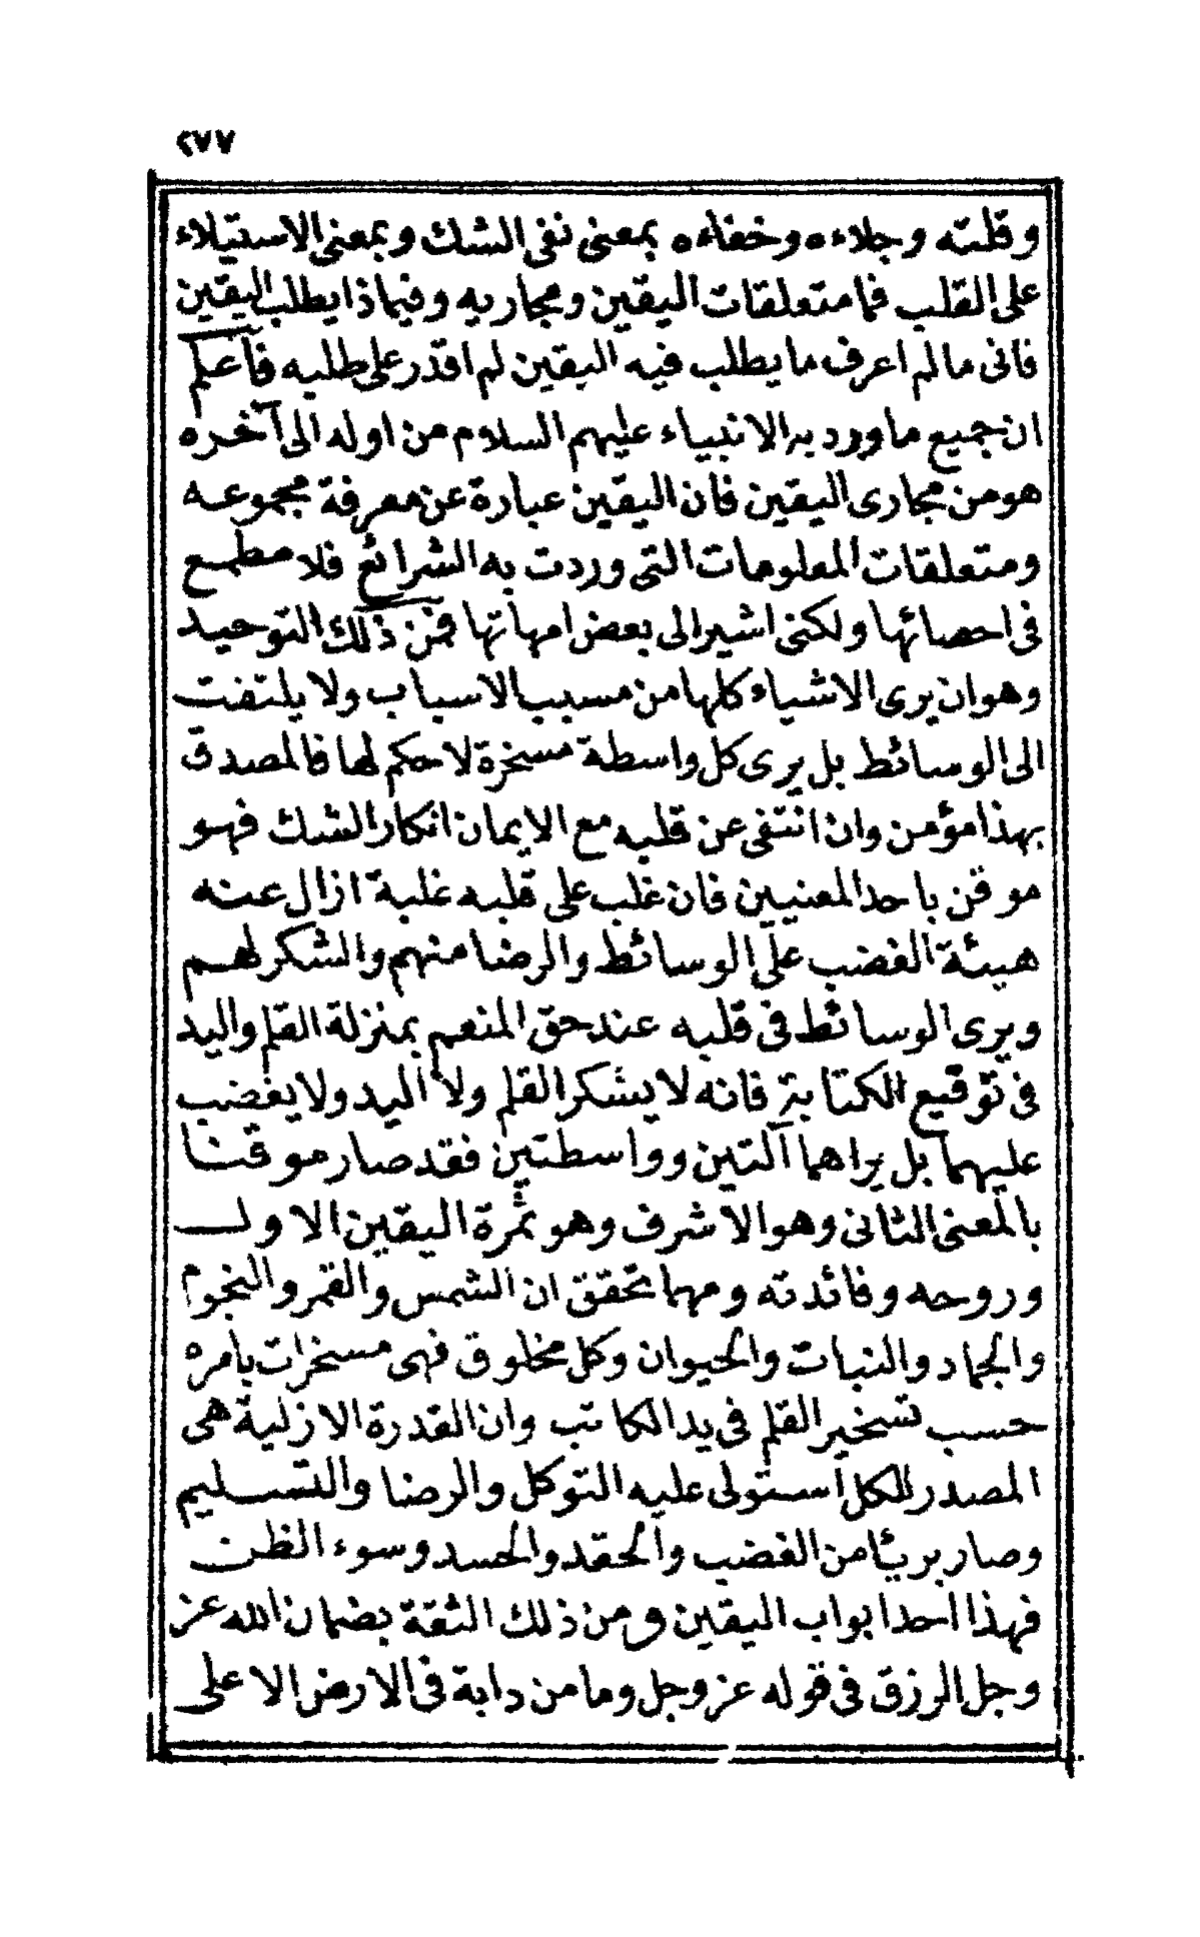 ٢٧٧
وقلته وجلاءه وخفاءه بمعنى نفى الشك وبمعنى الاستيلاء
على القلب فما متعلقات اليقين ومجاريه وفيماذا يطلب اليقين
فانى مالم اعرف ما يطلب فيه اليقين لم اقدر على طلبه فاعلم
ان جميع ما ورد به الانبياء عليهم السلام من اوله الى آخره
هو من مجارى اليقين فان اليقين عبارة عن معرفة مجموعه
ومتعلقات المعلومات التى وردت به الشرائع فلا مطمع
فى احصائها ولكنى اشير الى بعض امهاتها فمن ذلك التوحيد
وهو ان يرى الاشياء كلها من مسبب الاسباب ولا يلتفت
الى الوسائط بل يرى كل واسطة مسخرة لا حكم لها فالمصدق
بهذا مؤمن وان انتفى عن قلبه مع الايمان انكار الشك فهو
موقن باحد المعنيين فان غلب على قلبه غلبة ازال عنه
هيئة الغضب على الوسائط والرضا منهم والشكر لهم
ويرى الوسائط فى قلبه عند حق المنعم بمنزلة القلم واليد
فى توقيع الكتابة فانه لا يشكر القلم ولا اليد ولا يغضب
عليهما بل يراهما آلتين وواسطتين فقد صار موقنا
بالمعنى الثانى وهو الاشرف وهو ثمرة اليقين الاول
وروحه وفائدته ومهما تحقق ان الشمس والقمر والنجوم
والجماد والنبات والحيوان وكل مخلوق فهى مسخرات بامره
حسب تسخير القلم فى يد الكاتب وان القدرة الازلية هى
المصدر للكل استولى عليه التوكل والرضا والتسليم
وصار بريئا من الغضب والحقد والحسد وسوء الظن
فهذا احد ابواب اليقين ومن ذلك الثقة بضمان الله عز
وجل الرزق فى قوله عز وجل وما من دابة فى الارض الا على